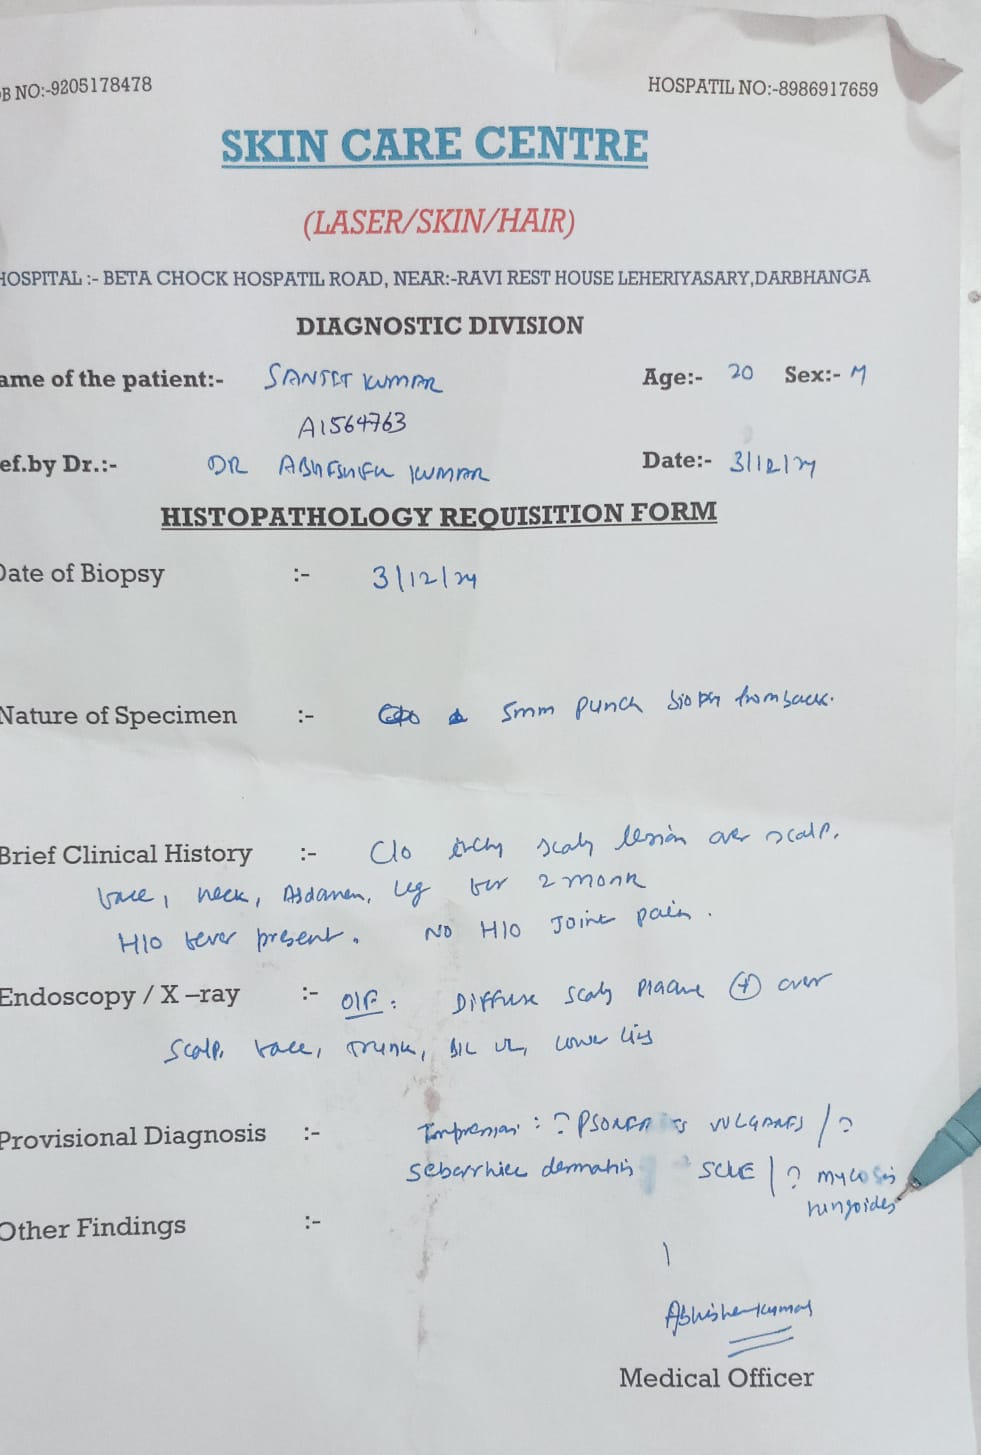 B NO:-9205178478
HOSPATIL NO:-8986917659
SKIN CARE CENTRE
(LASER/SKIN/HAIR)
HOSPITAL :- BETA CHOCK HOSPATIL ROAD, NEAR:-RAVI REST HOUSE LEHERIYASARY,DARBHANGA
DIAGNOSTIC DIVISION
ame of the patient:- KUMAR Age:- 20 Sex:- M
A1564763
ef.by Dr.:- DR KUMAR Date:- 3/12/24
HISTOPATHOLOGY REQUISITION FORM
Date of Biopsy :- 3/12/24
Nature of Specimen :- 5mm punch biopsy from back.
Brief Clinical History :- C/o itchy scaly lesion over scalp,
face, neck, Abdomen, leg for 2 month
H/O fever present. NO H/O Joint pain.
Endoscopy / X –ray :- O/E: Diffuse scaly plaque + over
scalp, face, Trunk, B/L UL, lower
Provisional Diagnosis :- Impression : ? PSORIASIS VULGARIS / ?
seborrhiec dermatitis SCLE / ? mycosis
fungoides
Other Findings :-
Abhishek Kumar
Medical Officer